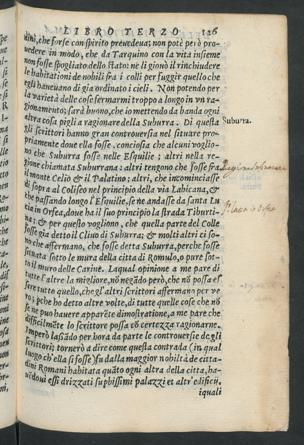 LIBRO TERZO 126
dini, che forse con spirito preuedeua; non potè però pro-
uedere in modo, che da Tarquino con la vita insieme
non fosse spogliato dello stato: nè li giouò il rinchiudere
le habitationi de nobili fra i colli per fuggir quello che
egli haueuano di già ordinato i cieli. Non potendo per
la varietà delle cose fermarmi troppo a longo in vn ra-
gionamento; sarà buono, che io mettendo da banda ogni
altra cosa pigli a ragionare della Suburra. Di questa
Suburra.
gli scrittori hanno gran controuersia nel situare pro-
priamente doue ella fosse, conciosia che alcuni voglio-
no che Suburra fosse nelle Esquilie; altri nella re-
gione chiamata Suburrana: altri tengono che fosse fra
il monte Celio & il Palatino; altri, che incominciasse
di sopra al Coliseo nel principio della via Labicana, &
che passando longo l'Esquilie, se ne andasse da santa Lu
cia in Orfea, doue ha il suo principio la strada Tiburti-
na; & per questo vogliono, che quella parte del Colle
fosse già detto il Cliuo di Suburra; & molti altri ci so-
no che affermano, che fosse detta Suburra, perche fosse
situata sotto le mura della città di Romulo, o pure sot-
to il muro delle Carine. Laqual opinione a me pare di
tutte l'altre la migliore, nō negādo però, che nō possa es
sere tutto quello, che gl'altri scrittori affermano per ve
ro; pche ho detto altre volte, di tutte quelle cose che nō
se ne puo hauere apparēte dimostratione, a me pare che
difficilmēte lo scrittore possa cō certezza ragionarne.
Imperò lasciādo per hora da parte le controuersie degli
scrittori; tornerò a dire come questa contrada (in qual
luogo ch'ella si fosse) fu dalla maggior nobiltà de citta-
dini Romani habitata quāto ogni altra della città, ha-
uēdoui essi drizzati supbissimi palazzi et altr'edificij,
iquali